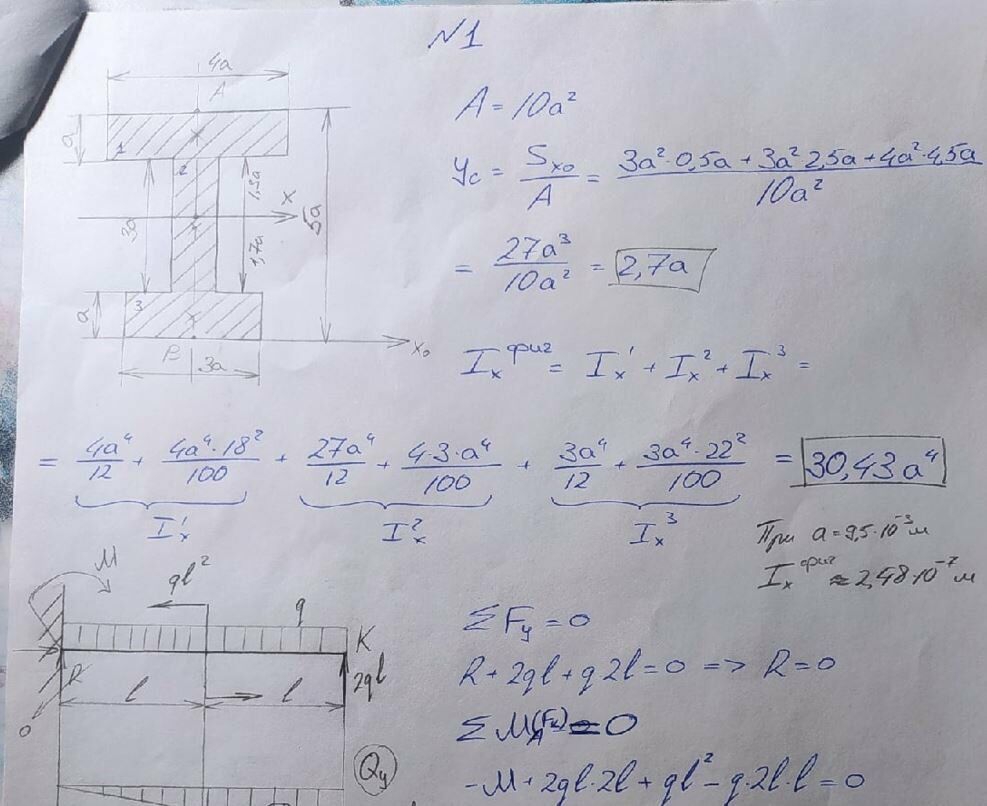 N1
4a
A
A = 10a²
a
1
2
1,3a
x
3a
1,7a
5a
y_c = S_x₀ / A = (3a²·0,5a + 3a²·2,5a + 4a²·4,5a) / 10a²
= 27a³ / 10a² = 2,7a
a
3
B
x₀
3a
I_x^фиг = I_x^1 + I_x^2 + I_x^3 =
= 4a⁴/12 + 4a⁴·18²/100 + 27a⁴/12 + 4·3·a⁴/100 + 3a⁴/12 + 3a⁴·22²/100 = 30,43a⁴
I_x^1 I_x^2 I_x^3
При a = 9,5·10⁻³ м
I_x^фиг ≈ 2,48·10⁻⁷ м
M
ql²
q
K
R
l
l
2ql
ΣF_y = 0
R + 2ql + q2l = 0 => R = 0
0
Q_y
-M + 2ql·2l + ql² - q·2l·l = 0